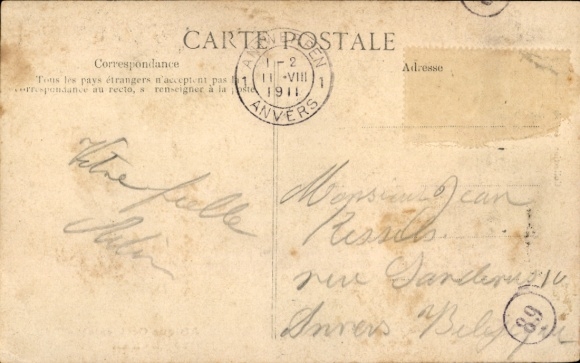 CARTE POSTALE
Correspondance
Adresse
Tous les pays étrangers n'acceptent pas la
correspondance au recto, se renseigner à la poste
ANTWERPEN
1 1-2 1
11 VIII
1911
ANVERS
Votre
Monsieur Jean
Kessels
rue
Anvers Belgique
68